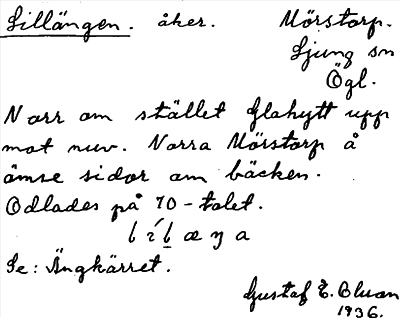 Lillängen. åker. Mörstorp.
Ljung sn
Ögl.
Norr om stället Glahytt upp
mot nuv. Norra Mörstorp å
ömse sidor om bäcken.
Odlades på 70-talet.
Se: Ängkärret.
Gustaf E. Bluan
1936.